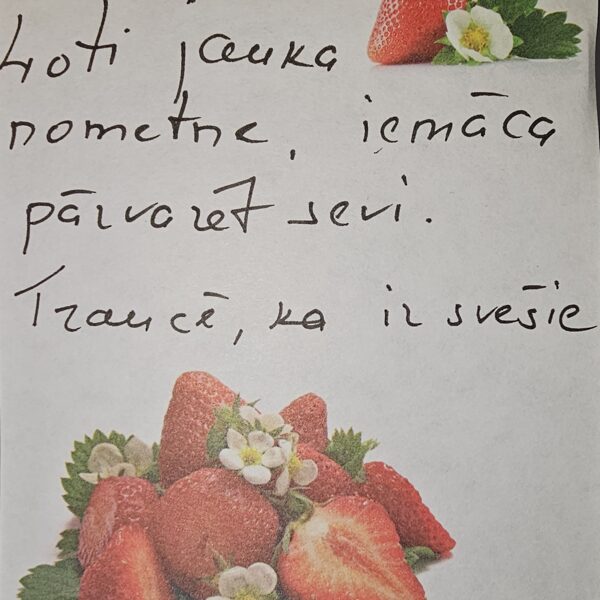 Ļoti jauka
nometne, iemāca
pārvarēt sevi.
Traucē, ka ir svešie